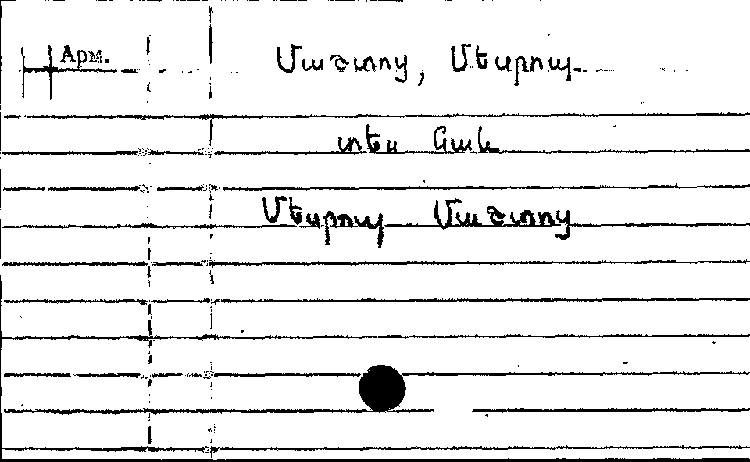 Арм.
Մաշտոց, Մեսրոպ
տես նաև
Մեսրոպ Մաշտոց